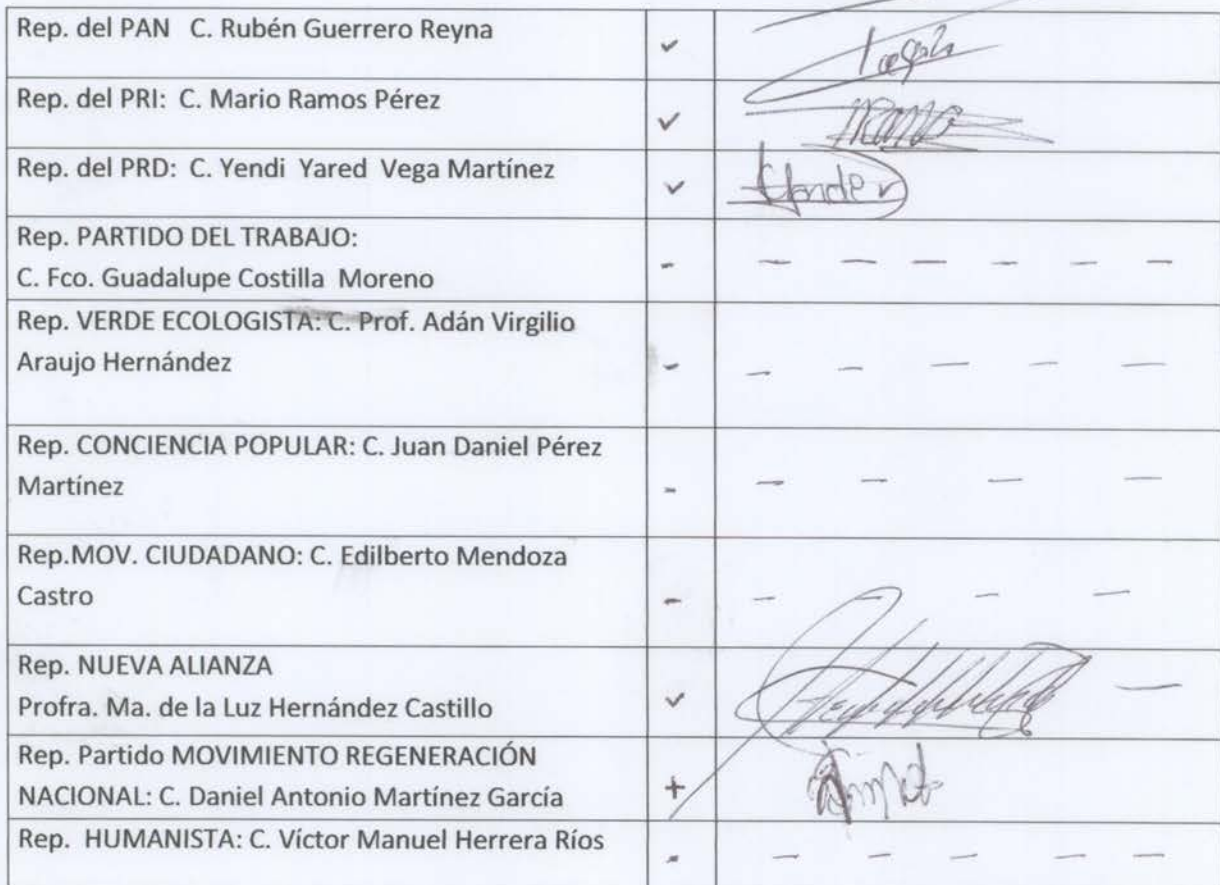 Rep. del PAN C. Rubén Guerrero Reyna ✓
Rep. del PRI: C. Mario Ramos Pérez ✓
Rep. del PRD: C. Yendi Yared Vega Martínez ✓
Rep. PARTIDO DEL TRABAJO:
C. Fco. Guadalupe Costilla Moreno - — — — — — —
Rep. VERDE ECOLOGISTA: C. Prof. Adán Virgilio
Araujo Hernández - — — — — —
Rep. CONCIENCIA POPULAR: C. Juan Daniel Pérez
Martínez - — — — —
Rep.MOV. CIUDADANO: C. Edilberto Mendoza
Castro - — — — —
Rep. NUEVA ALIANZA
Profra. Ma. de la Luz Hernández Castillo ✓ —
Rep. Partido MOVIMIENTO REGENERACIÓN
NACIONAL: C. Daniel Antonio Martínez García +
Rep. HUMANISTA: C. Víctor Manuel Herrera Ríos - — — — — — —